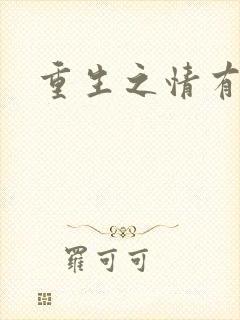 重生之情有
羅可可